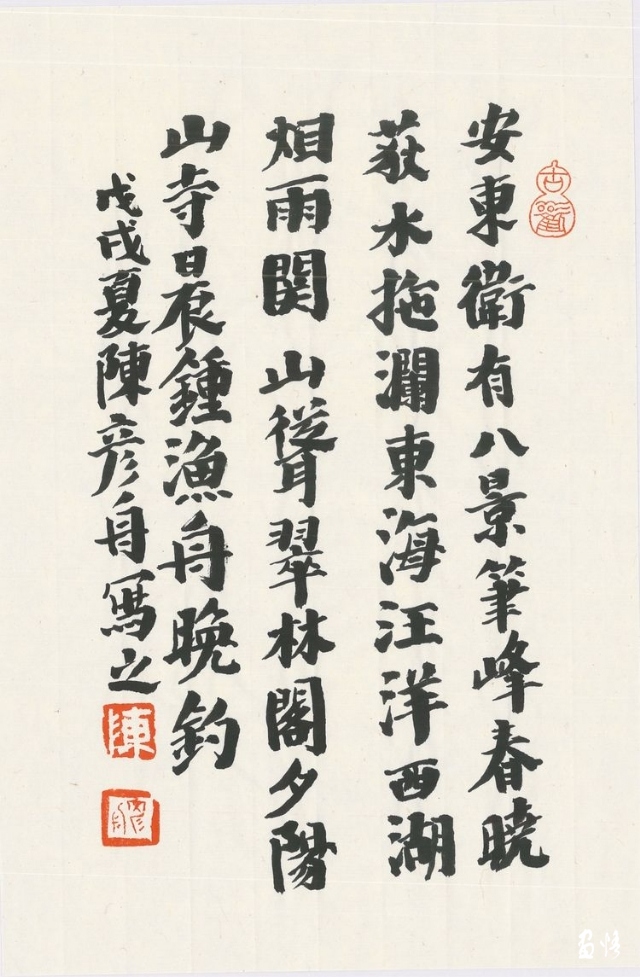 安東衛有八景筆峰春曉
荻水拖瀾東海汪洋西湖
烟雨関山聳翠林閣夕陽
山寺晨鍾漁舟晚釣
戊戌夏陳彦舟寫之
陳